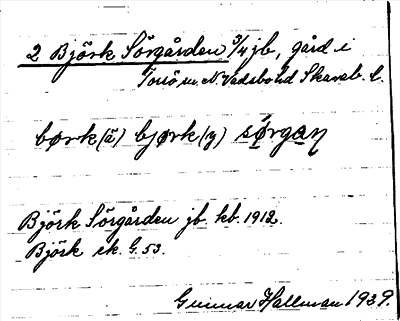 2 Björk Sörgården 3/4 jb, gård i
Torsö sn. N Vadsbo hd Skarab. l.
børk (ä) bjørk (y) sørgaṇ
Björk Sörgården jb. kb. 1912.
Björk ek. G. 53.
Gunnar Hallman 1939.